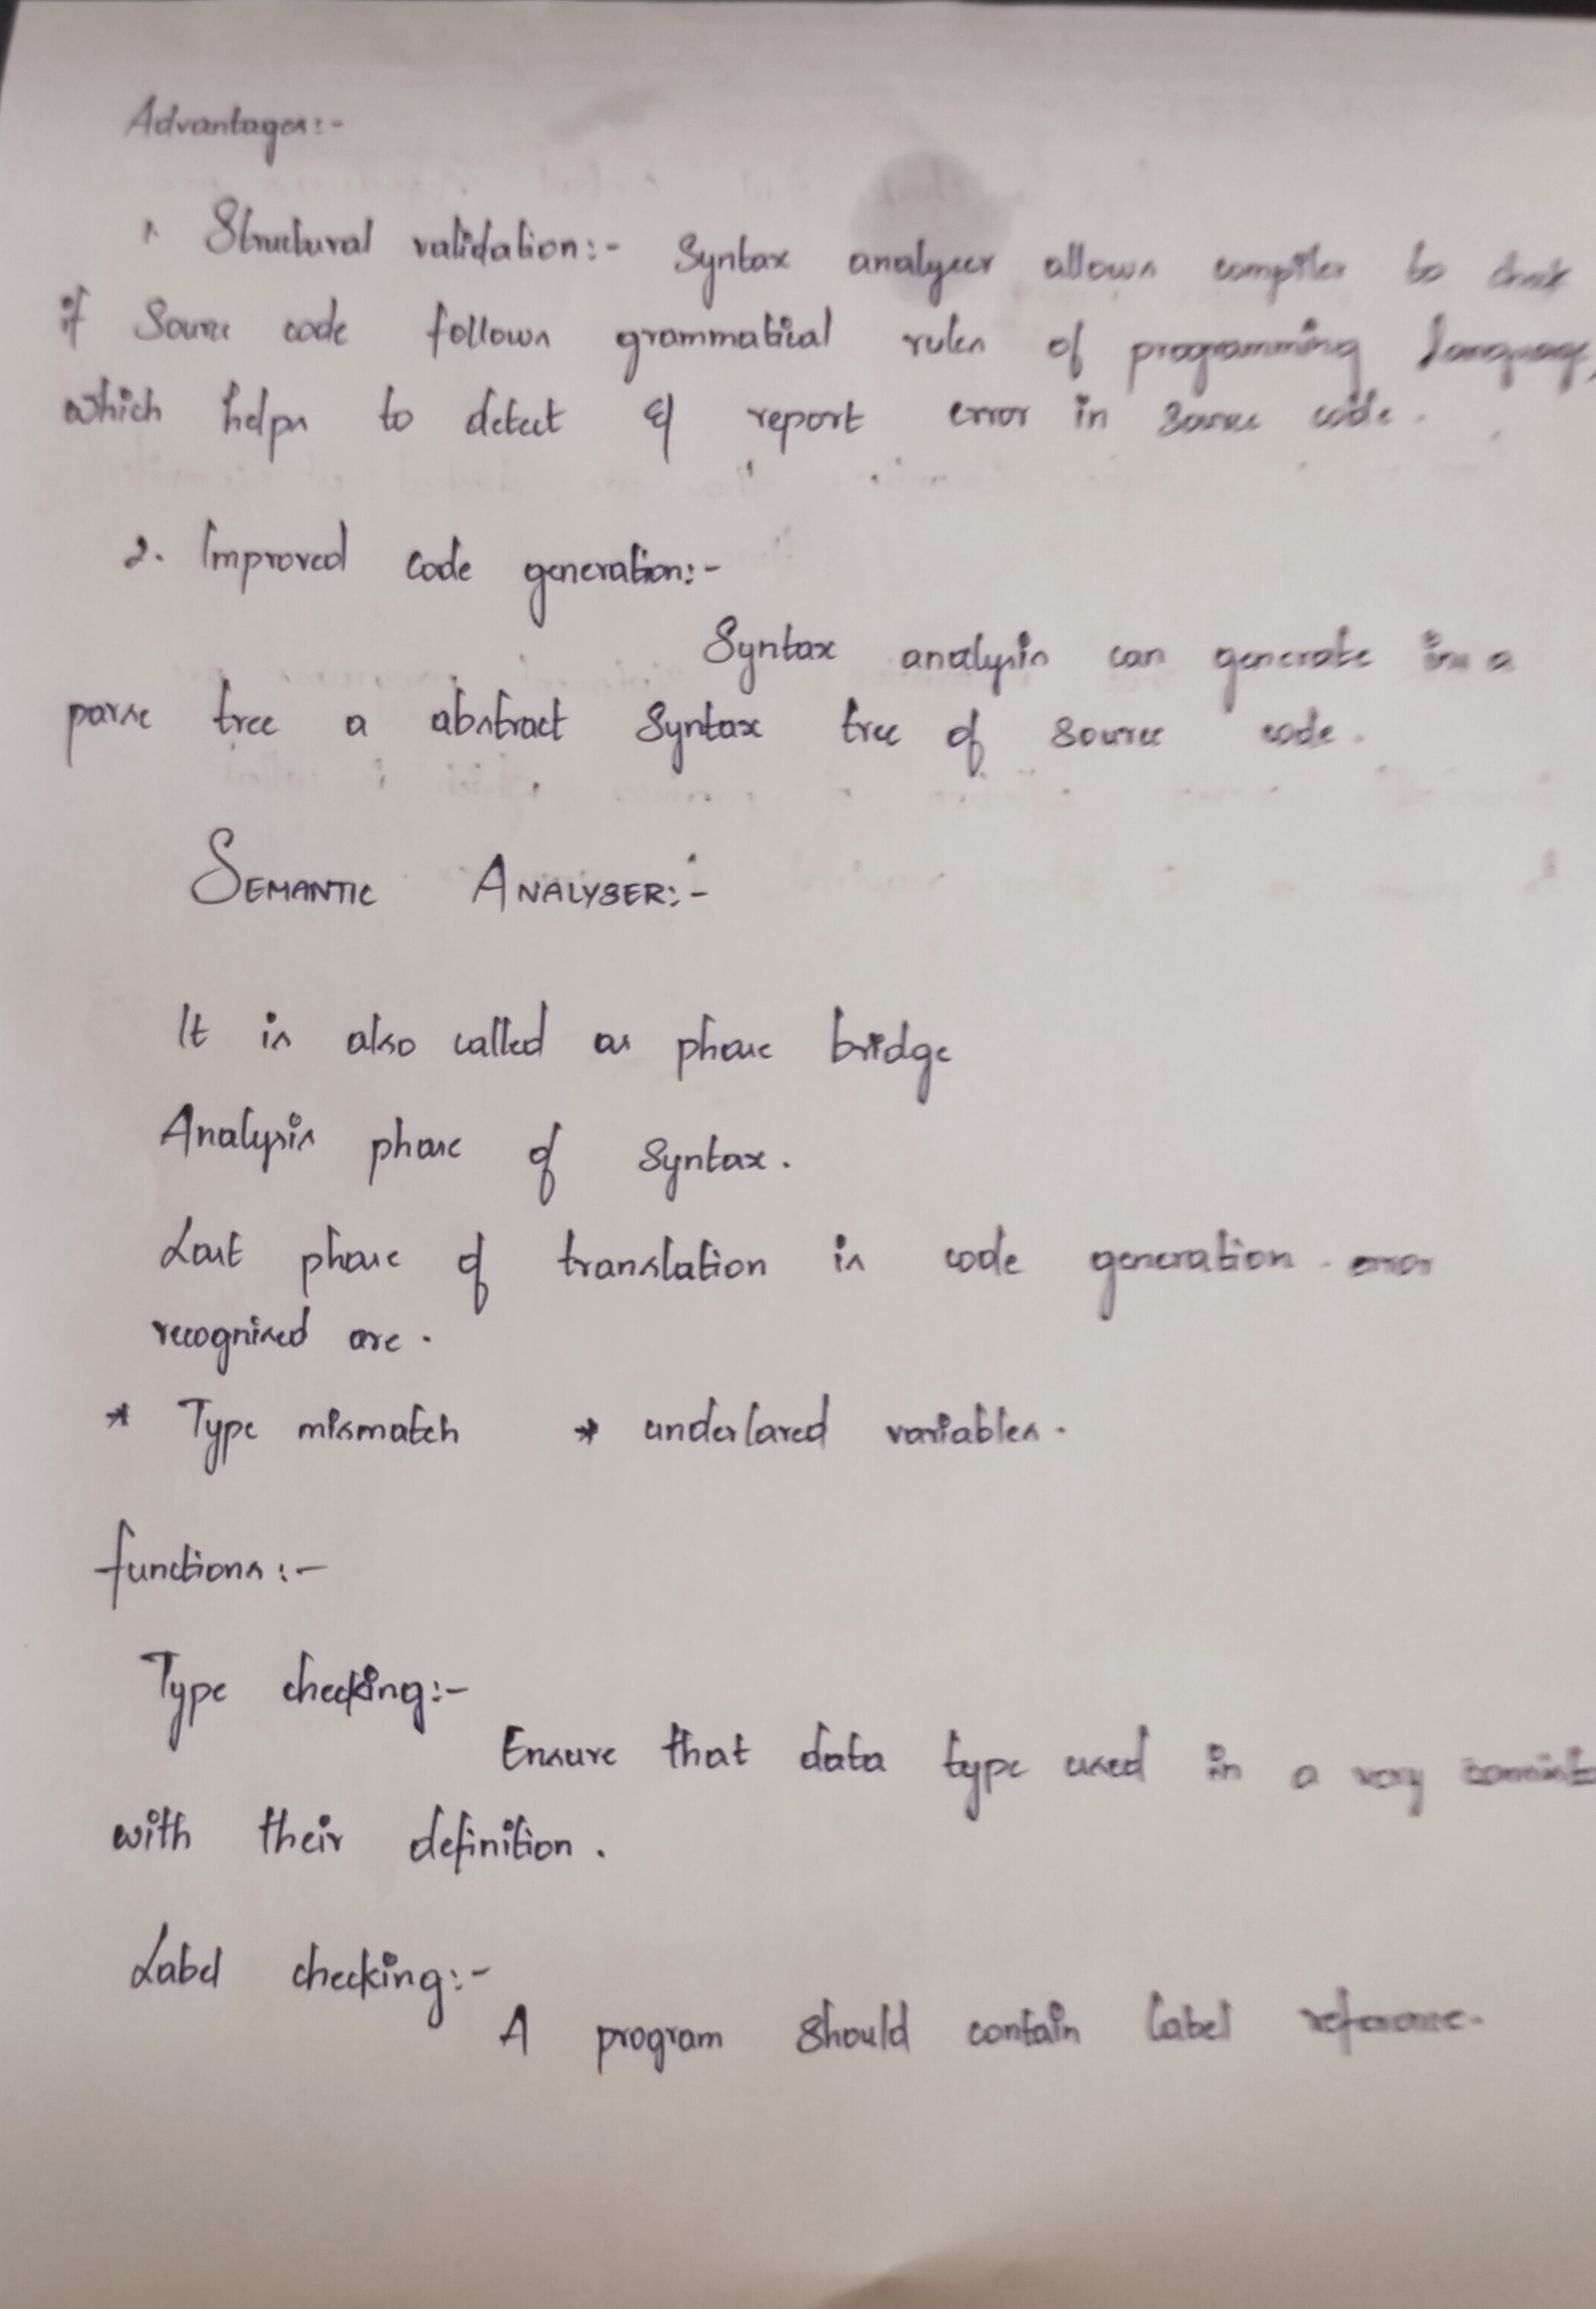 Advantages:-
1. Structural validation:- Syntax analyser allows compiler to
if Source code follows grammatical rules of programming language,
which helps to detect & report error in source code.
2. Improved code generation:-
Syntax analysis can generate in a
parse tree a abstract Syntax tree of source code.
SEMANTIC ANALYSER:-
It is also called as phase bridge
Analysis phase of Syntax.
Last phase of translation is code generation. error
recognised are.
* Type mismatch * underlared variables.
functions:-
Type checking:-
Ensure that data type used in a very
with their definition.
Label checking:-
A program should contain label reference.